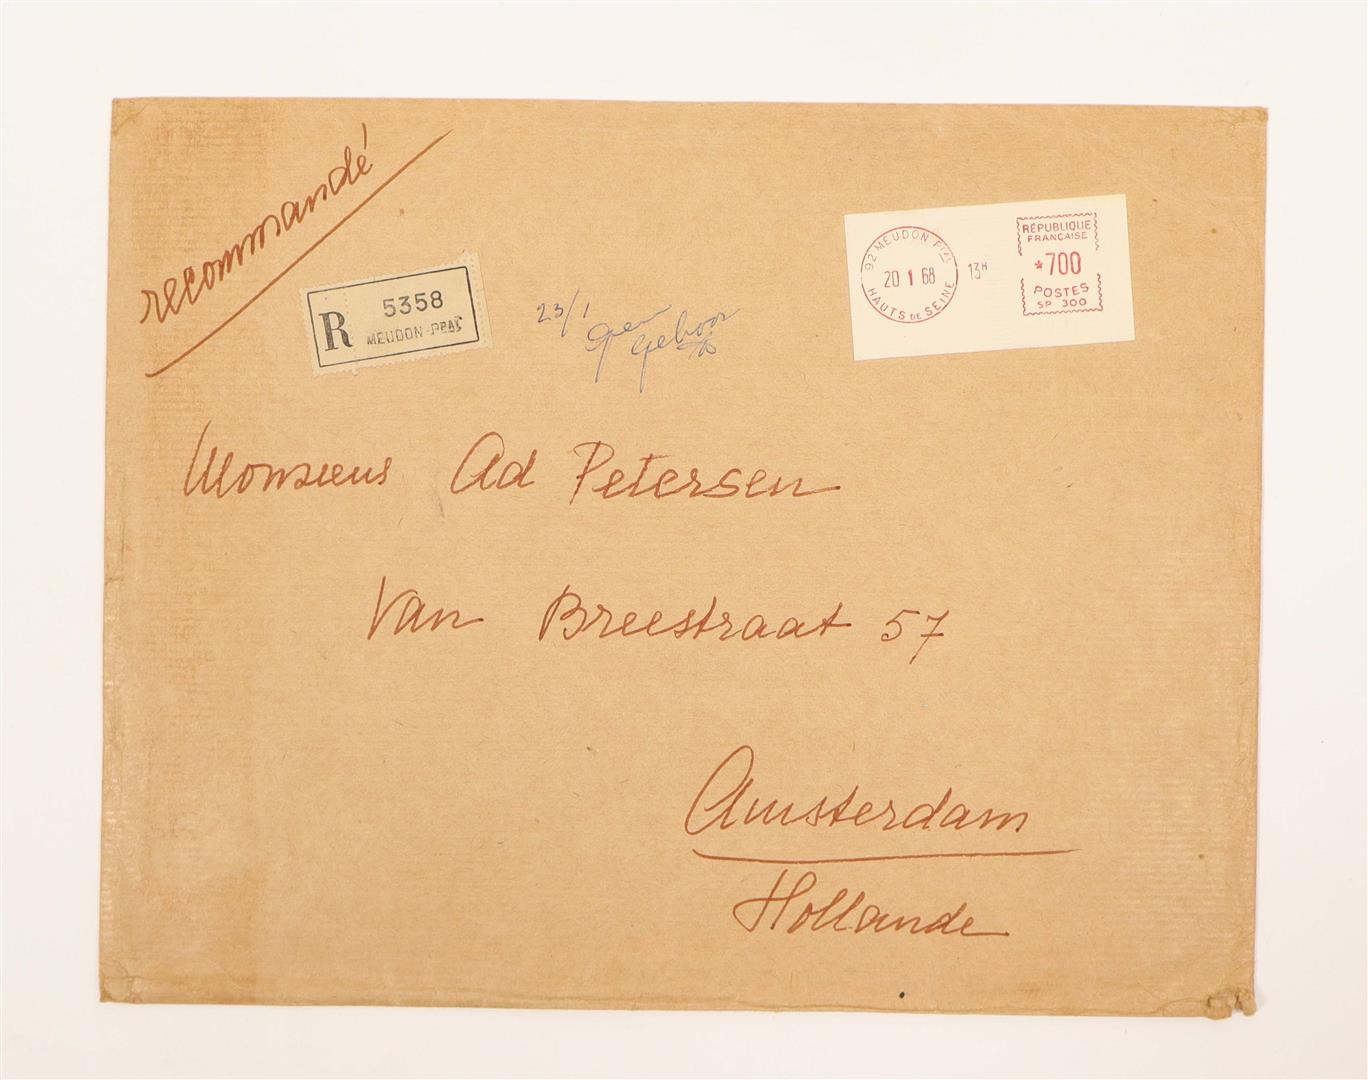 recommandé
R
5358
MEUDON-PPAL
23/1
geen
gehoor
92 MEUDON PPAL
20 1 68
HAUTS DE SEINE
13H
RÉPUBLIQUE
FRANÇAISE
*700
POSTES
SP 300
Monsieur Ad Petersen
Van Breestraat 57
Amsterdam
Hollande